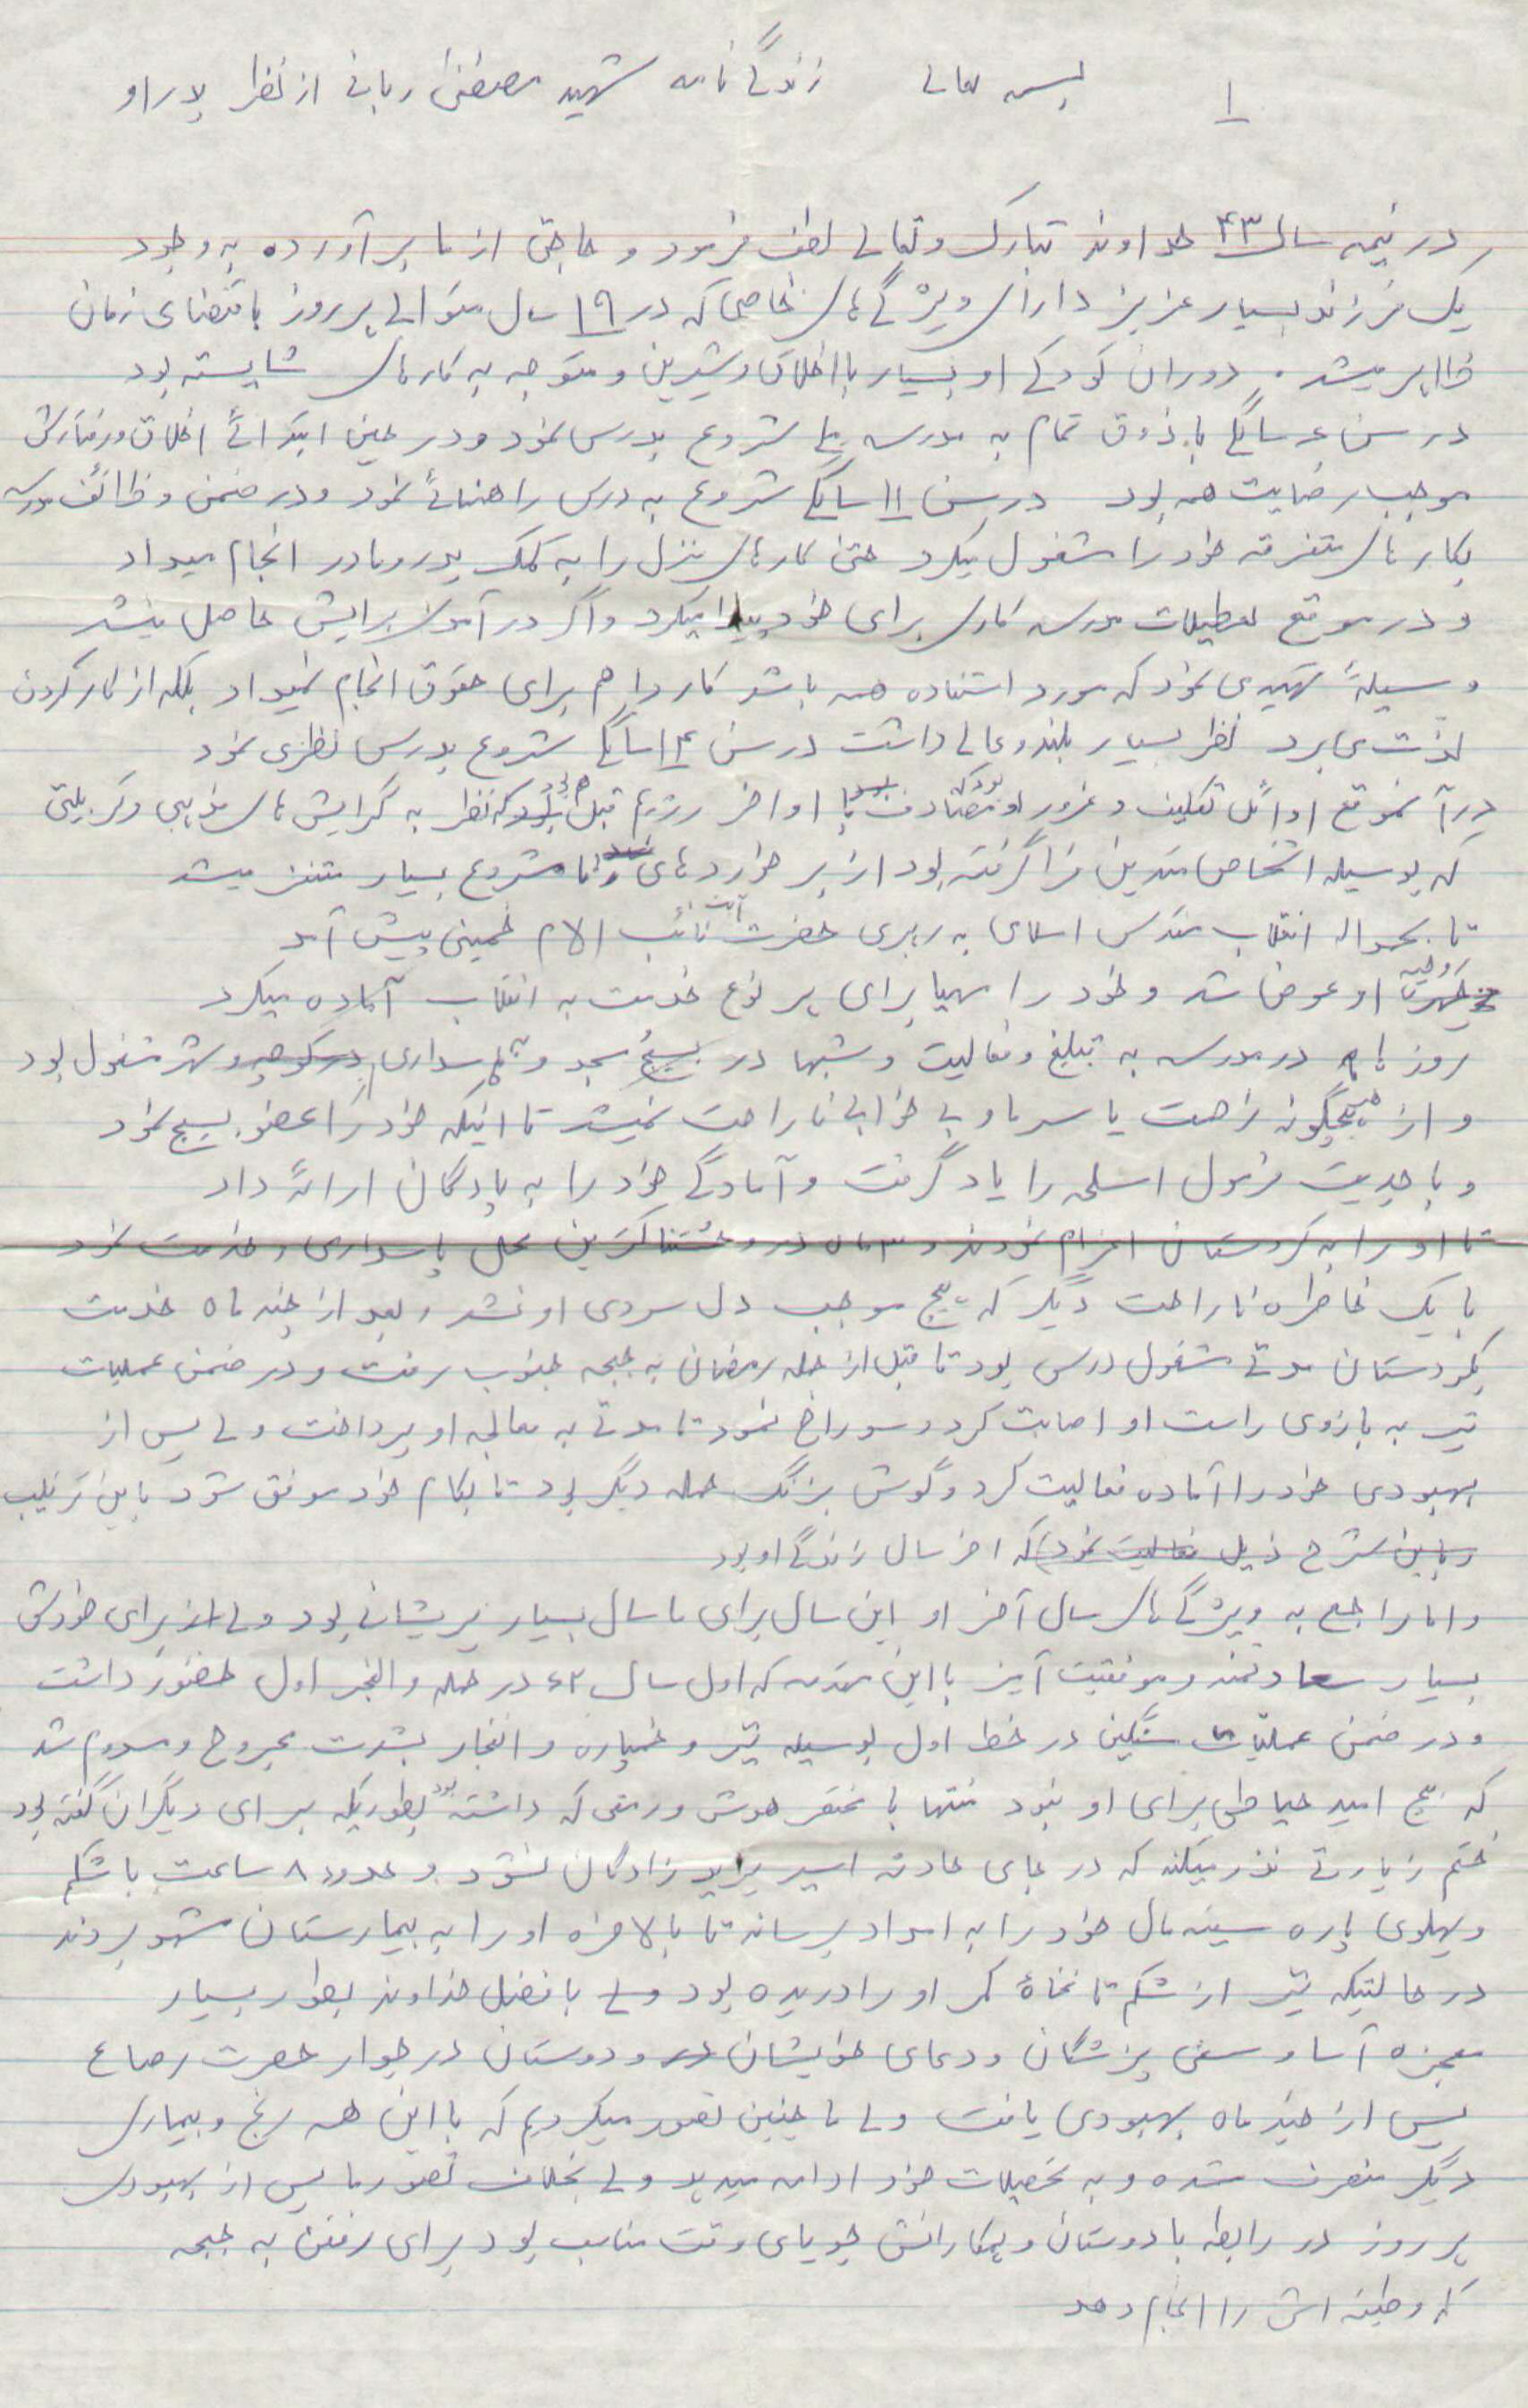 ۱
بسمه تعالی زندگی نامه شهید مصطفی ربانی از نظر پدر او
در نیمه سال ۴۳ خداوند تبارک و تعالی لطف فرمود و حاجتی از ما برآورده به وجود
یک فرزند بسیار عزیز دارای ویژگی های خاصی که در ۱۹ سال متوالی هر روز باقتضای زمان
ظاهر میشد . دوران کودکی او بسیار با اخلاق و شیرین و متوجه به کارهای شایسته بود
در سن ۶ سالگی با ذوق تمام به مدرسه شروع بدرس نمود و در حین ابتدائی اخلاق و رفتارش
موجب رضایت همه بود در سن ۱۱ سالگی شروع به درس راهنمائی نمود و در ضمن وظائف مدرسه
بکارهای متفرقه خود را مشغول میکرد حتی کارهای منزل را به کمک پدر و مادر انجام میداد
و در موقع تعطیلات مدرسه کاری برای خود پیدا میکرد و اگر درآمدی برایش حاصل میشد
وسیله تهیه می نمود که مورد استفاده همه باشد کار را هم برای حقوق انجام نمیداد بلکه از کار کردن
لذت می برد نظر بسیار بلند و عالی داشت در سن ۱۴ سالگی شروع بدرس نظری نمود
در آنموقع اوائل تکلیف و غرور او مصادف با اواخر رژیم قبل بود که نظر به گرایش های مذهبی و تربیتی
که بوسیله اشخاص متدین فرا گرفته بود از برخوردهای نامشروع بسیار متنفر میشد
تا بحمداله انقلاب مقدس اسلامی به رهبری حضرت آیت اله نائب الامام خمینی پیش آمد
روحیه او عوض شد و خود را مهیا برای هر نوع خدمت به انقلاب آماده میکرد
روزها در مدرسه به تبلیغ و فعالیت و شبها در بسیج مسجد و پاسداری در کوچه و شهر مشغول بود
و از هیچگونه زحمت یا سرما و بی خوابی ناراحت نمیشد تا اینکه خود را عضو بسیج نمود
و با جدیت فرمول اسلحه را یاد گرفت و آمادگی خود را به پادگان ارائه داد
تا او را به کردستان اعزام نمودند و ۳ ماه در وحشتناکترین محل پاسداری و خدمت نمود
با یک خاطره ناراحت دیگر که هیچ موجب دل سردی او نشد و بعد از چند ماه خدمت
بکردستان مدتی مشغول درس بود تا قبل از حمله رمضان به جبهه جنوب رفت و در ضمن عملیات
تیر به بازوی راست او اصابت کرد و سوراخ نمود تا مدتی به معالجه او پرداخت ولی پس از
بهبودی خود را آماده فعالیت کرد و گوش بزنگ حمله دیگر بود تا بکام خود موفق شود باین ترتیب
و باین شرح ذیل فعالیت نمود که اخر سال زندگی او بود
و اما راجع به ویژگی های سال آخر او این سال برای ما سال بسیار پریشانی بود ولی از برای خودش
بسیار سعادتمند و موفقیت آمیز با این مقدمه که اول سال ۶۲ در حمله والفجر اول حضور داشت
و در ضمن عملیات سنگین در خط اول بوسیله تیر و خمپاره و انفجار بشدت مجروح و مصدوم شد
که هیچ امید حیاطی برای او نبود منتها با مختصر هوش و رمقی که داشته بود بطوریکه برای دیگران گفته بود
ختم زیارتی نذر میکند که در جای حادثه اسیر یزید زادگان نشود و حدود ۸ ساعت با شکم
و پهلوی پاره سینه مال خود را به امداد برساند تا بالاخره او را به بیمارستان مشهد بردند
در حالتیکه تیر از شکم تا نخاع کمر او را دریده بود ولی با فضل خداوند بطور بسیار
معجزه آسا و سعی پزشکان و دعای خویشان و دوستان در جوار حضرت رضا ع
پس از چند ماه بهبودی یافت ولی ما چنین تصور میکردیم که با این همه رنج و بیماری
دیگر منصرف شده و به تحصیلات خود ادامه میدهد ولی بخلاف تصور ما پس از بهبودی
هر روز در رابطه با دوستان و همکارانش جویای وقت مناسب بود برای رفتن به جبهه
که وظیفه اش را انجام دهد